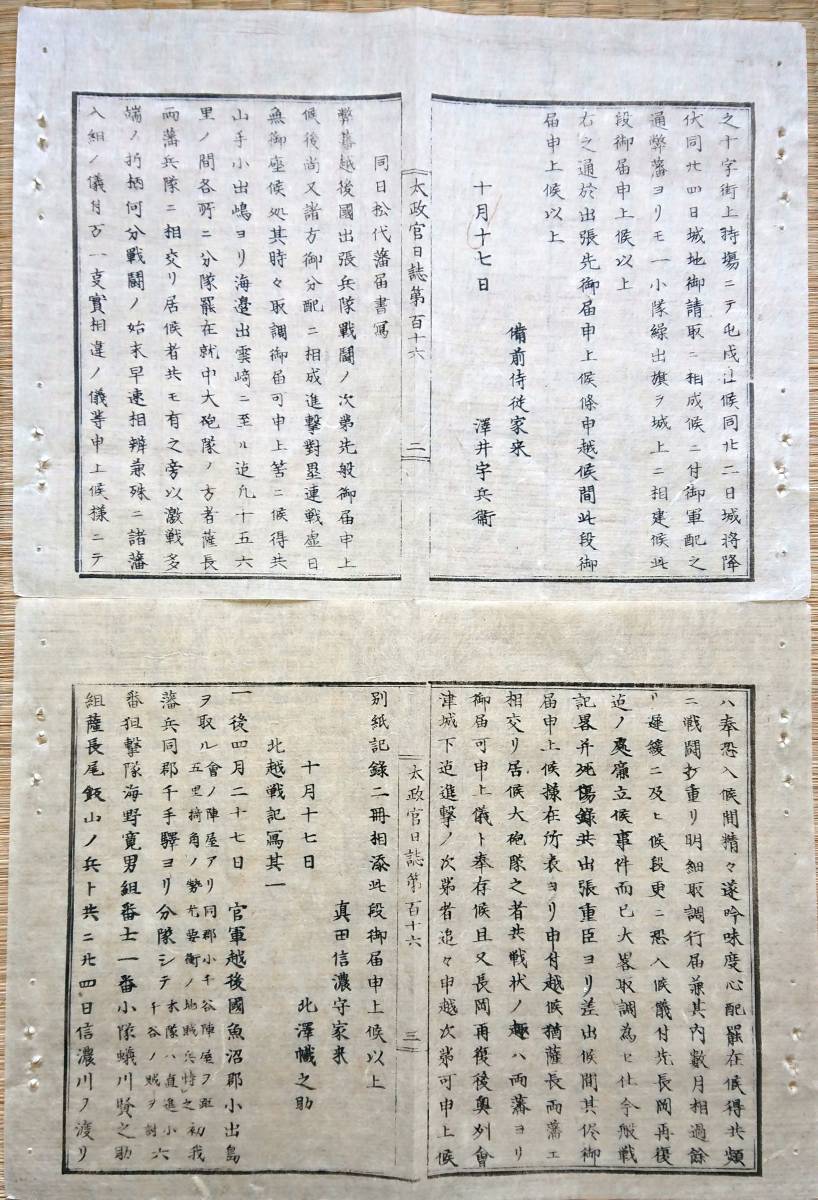 之十字街上持場ニテ屯戍シ候同廿二日城将降
伏同廿四日城地御請取ニ相成候ニ付御軍配之
通弊藩ヨリモ一小隊繰出旗ヲ城上ニ相建候此
段御届申上候以上
右之通於出張先御届申上候條申越候間此段御
届申上候以上
十月十七日
備前侍従家来
澤井宇兵衛
太政官日誌第百十六
二
同日松代藩届書寫
弊藩越後國出張兵隊戦闘ノ次第先般御届申上
候後尚又諸方御分配ニ相成進撃對塁連戦虚日
無御座候処其時々取調御届可申上筈ニ候得共
山手小出嶋ヨリ海邊出雲崎ニ至ル迠凡十五六
里ノ間各所ニ分隊罷在就中大砲隊ノ方者薩長
両藩兵隊ニ相交リ居候者共モ有之旁以激戦多
端ノ折柄何分戦闘ノ始末早速相辨兼殊ニ諸藩
入組ノ儀付万一事實相違ノ儀等申上候様ニテ
ハ奉恐入候間精々遂吟味度心配罷在候得共類
ニ戦闘打重リ明細取調行届兼其内數月相過餘
リ遅緩ニ及ヒ候段更ニ恐入候儀付先長岡再復
迠ノ處廉立候事件而已大畧取調為ヒ仕今般戦
記畧并死傷錄共出張重臣ヨリ差出候間其侭御
届申上候様在所表ヨリ申付越候猶薩長両藩エ
相交リ居候大砲隊之者共戦状ノ趣ハ両藩ヨリ
御届可申上儀ト奉存候且又長岡再復後奥州會
津城下迠進撃ノ次第者追々申越次第可申上候
太政官日誌第百十六
三
別紙記錄二冊相添此段御届申上候以上
真田信濃守家来
十月十七日
北澤幟之助
北越戦記寫其一
一後四月二十七日 官軍越後國魚沼郡小出島
ヲ取ル會ノ陣屋アリ同郡小千谷陣屋ヲ距
五里掎角ノ勢尤要衝ノ地賊兵恃之初我
藩兵同郡千手驛ヨリ分隊シテ本隊ハ直進小
千谷ノ賊ヲ討六
番狙撃隊海野寛男組番士一番小隊蟻川賢之助
組薩長尾飯山ノ兵ト共ニ廿四日信濃川ヲ渡リ